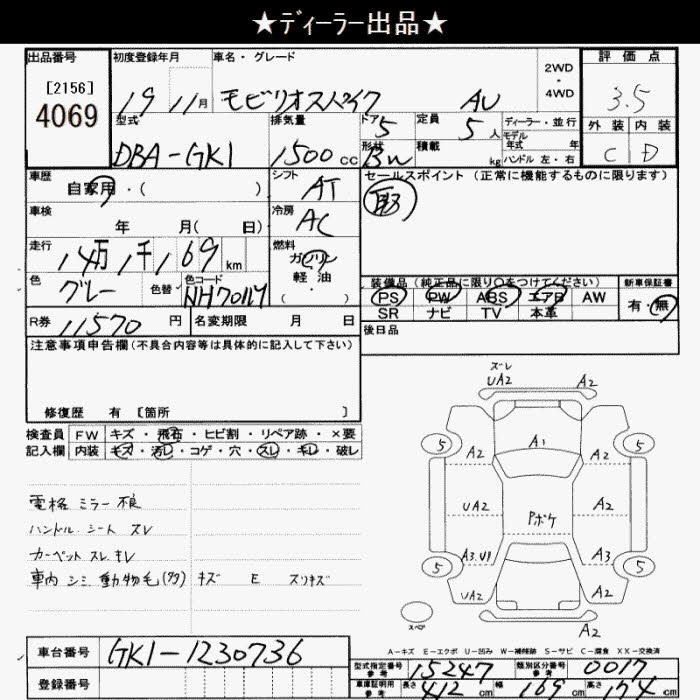 ★ディーラー出品★
出品番号 初度登録年月 車名・グレード 2WD・4WD 評価点
[2156]
4069
19 11月 モビリオスパイク AU 3.5
型式 排気量 ドア 5 定員 5人 ディーラー・並行 外装 内装
モデル年式 年
DBA-GK1 1500cc 形状 Bw 積載 kg ハンドル 左・右 C D
車歴 自家用・( ) シフト AT セールスポイント (正常に機能するものに限ります)
車検 年 月( 日) 冷房 AC
走行 14万1千169km 燃料 ガソリン 軽油 ・( )
色 グレー 色替 色コード NH701M
装備品 (純正品に限り○をつけてください) 新車保証書
PS PW ABS エアB AW 有・無
SR ナビ TV 本革
R券 11570円 名変期限 月 日 後日品
注意事項申告欄(不具合内容等は具体的に記入して下さい)
修復歴 有 [箇所 ]
検査員 FW キズ・飛石・ヒビ割・リペア跡・×要
記入欄 内装 キズ・汚レ・コゲ・穴・スレ・キレ・破レ
電格ミラー不良
ハンドル シート スレ
カーペット スレ キレ
車内 シミ 動物毛(多) キズ E スリキズ
ズレ
UA2 A2
5 A2 A1 A2 5
UA2 Pボケ A2
5 A3.U1 A3 5
UA2 A2
スペア A2
A-キズ E-エクボ U-凹み W-補修跡 S-サビ C-腐食 XX-交換済
車台番号 GK1-1230736
型式指定番号 参考 15247 類別区分番号 参考 0017
登録番号 車庫証明用 参考 長さ 412cm 幅 169cm 高さ 174cm